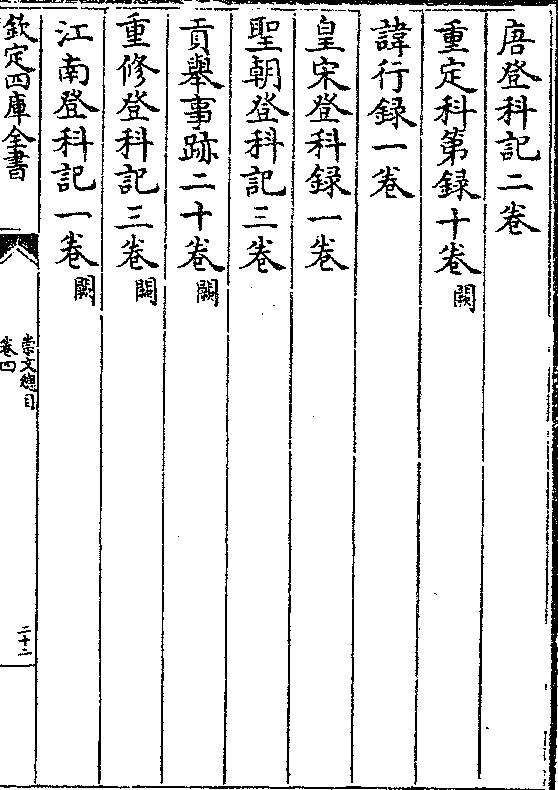 唐登科記二卷
重定科第録十卷闕
諱行録一卷
皇宋登科録一卷
聖朝登科記三卷
貢舉事跡二十卷闕
重修登科記三卷闕
江南登科記一卷闕
欽定四庫全書
崇文總目
卷四
二十二